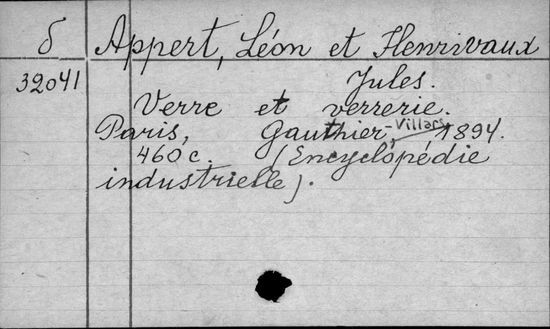 б Appert, Léon et Henrivaux
32041 Jules.
Verre et verrerie.
Paris, Gauthier-Villars, 1894.
460 c. (Encyclopédie
industrielle).